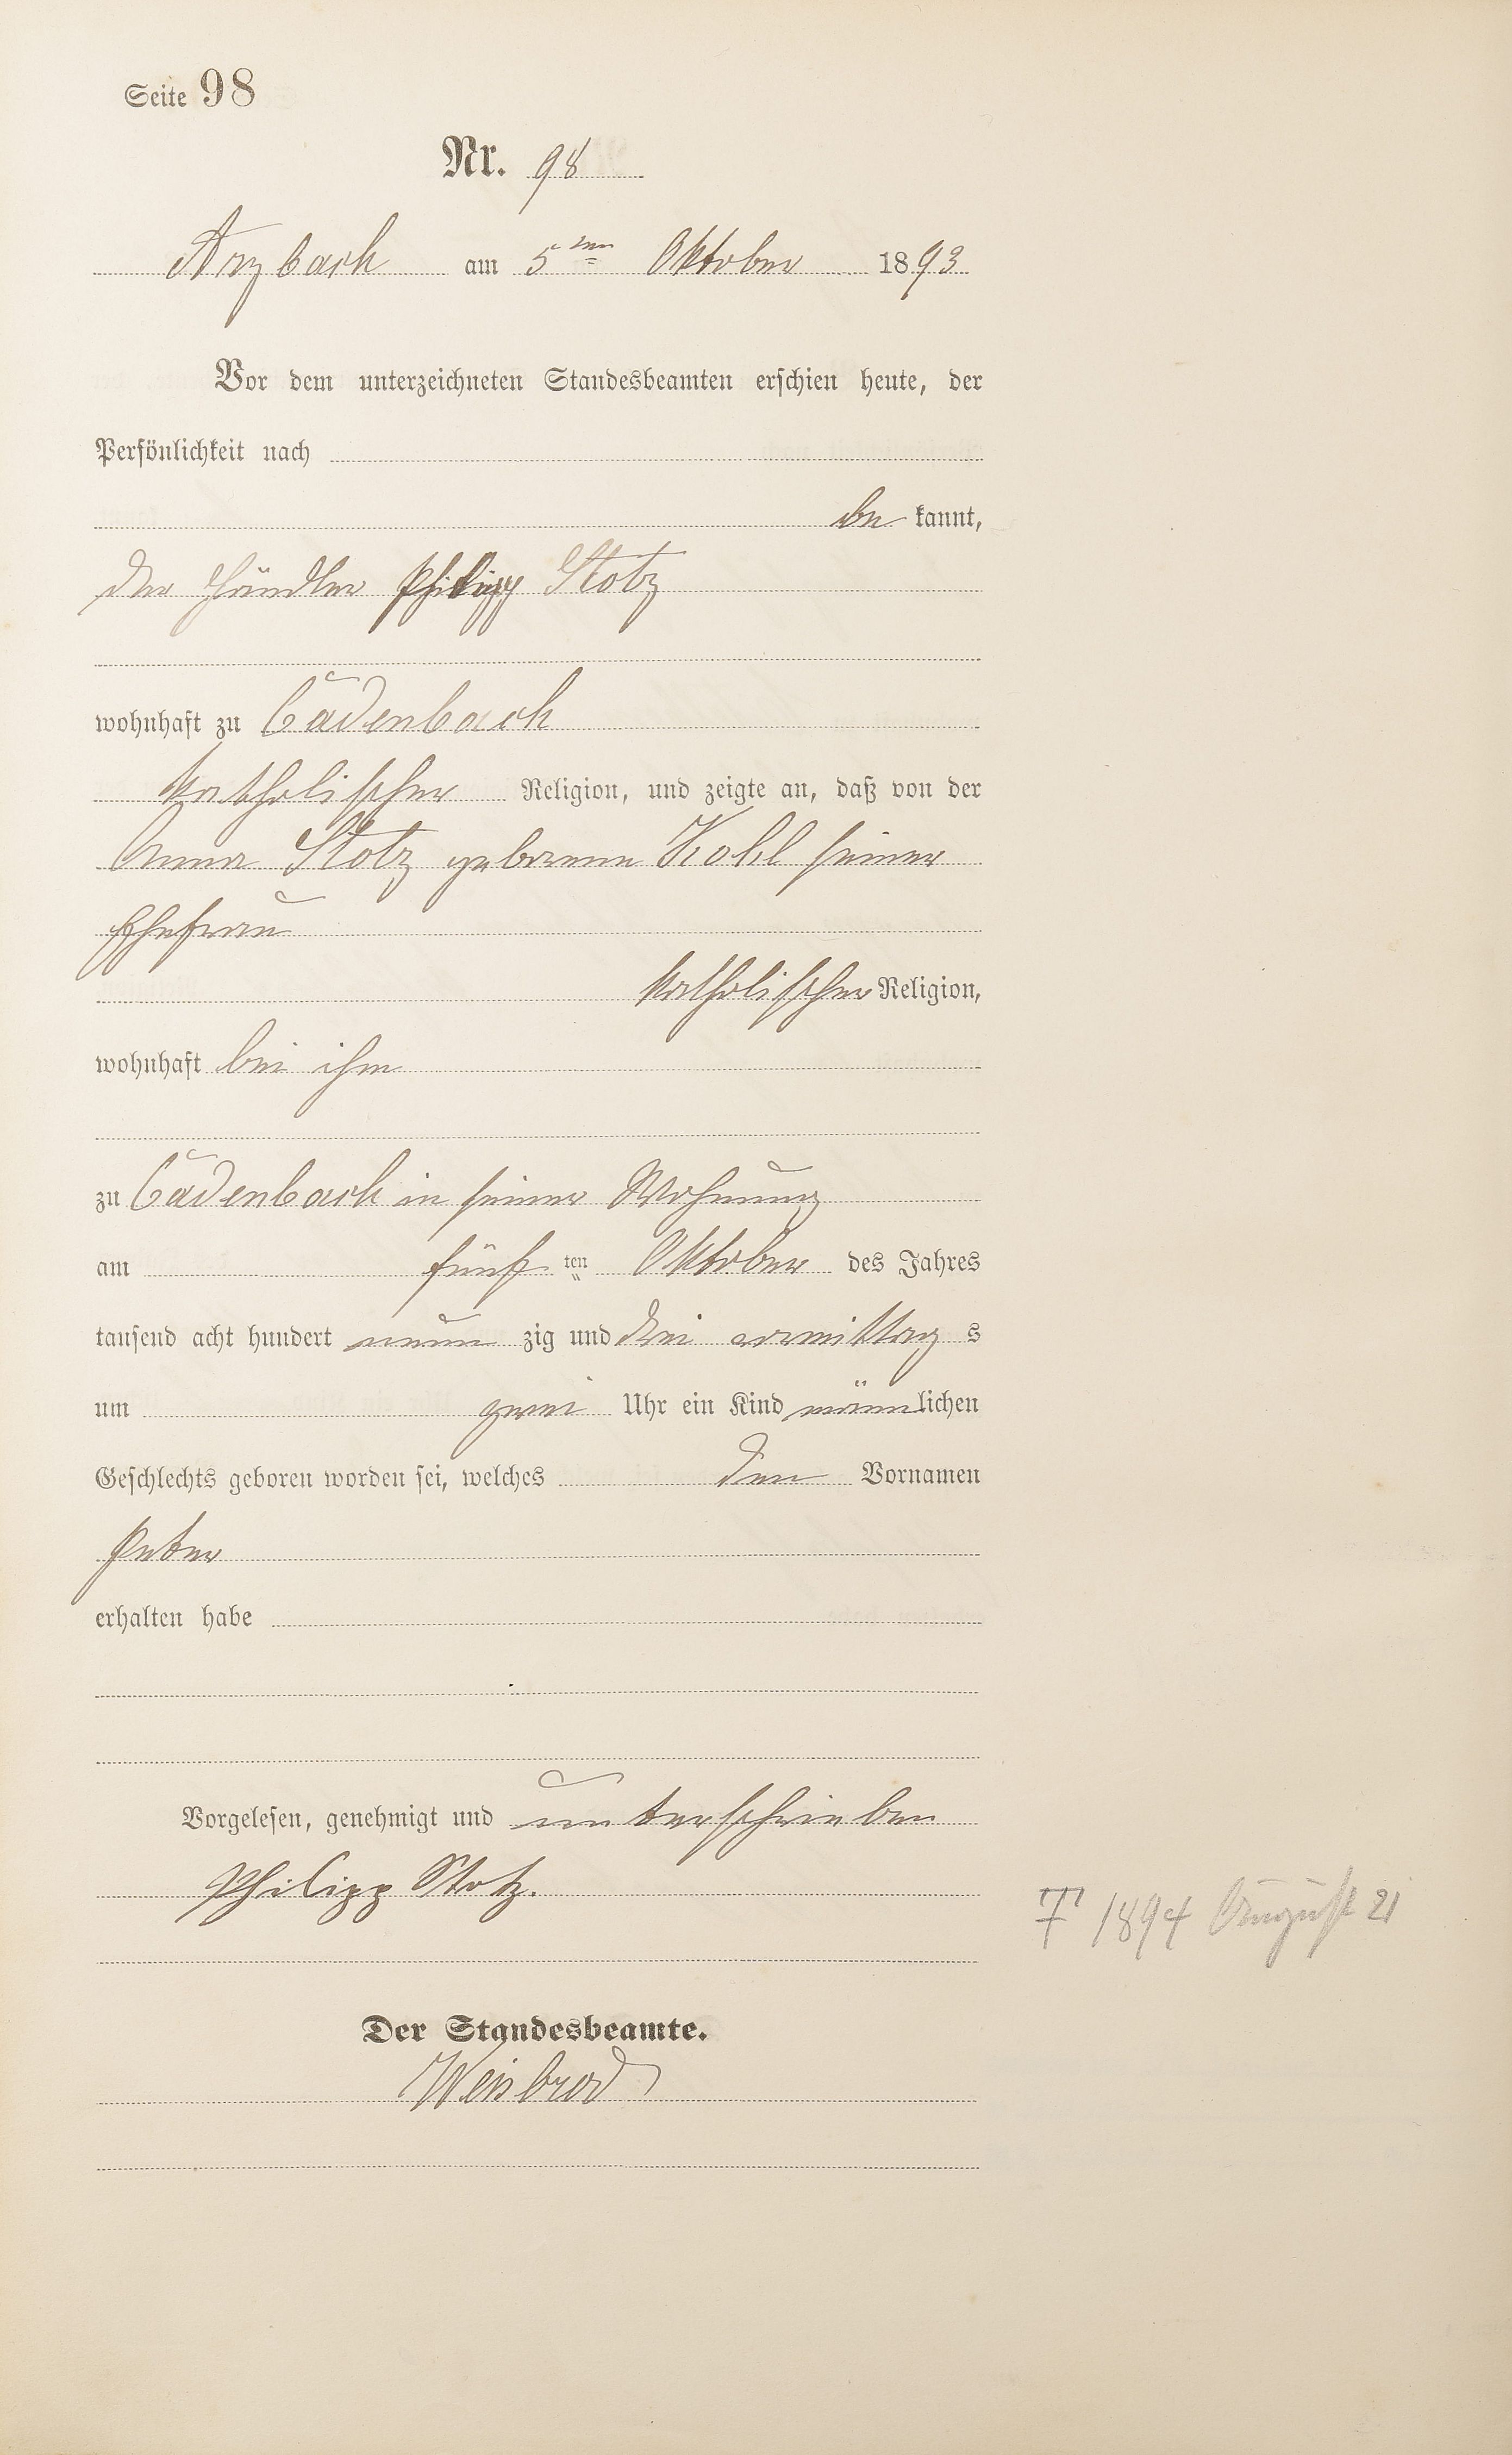 Seite 98
Nr. 98
Arzbach am 5ten Oktober 1893
Vor dem unterzeichneten Standesbeamten erschien heute, der
Persönlichkeit nach
be kannt,
der Händler Philipp Stotz
wohnhaft zu Cadenbach
katholischer Religion, und zeigte an, daß von der
Anna Stotz geborene Kohl seiner
Ehefrau
katholischer Religion,
wohnhaft bei ihm
zu Cadenbach in seiner Wohnung
am fünf ten Oktober des Jahres
tausend acht hundert neun zig und drei vormittag s
um zwei Uhr ein Kind männlichen
Geschlechts geboren worden sei, welches den Vornamen
Peter
erhalten habe
Vorgelesen, genehmigt und unterschrieben
Philipp Stotz.
† 1894 August 21
Der Standesbeamte.
Weisbrod